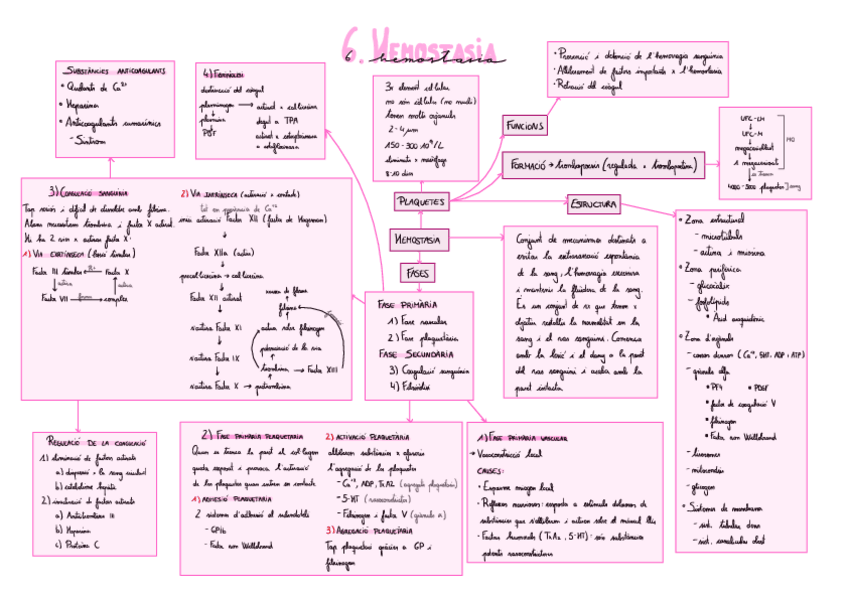 6. HEMOSTASIA
hemostasia
SUBSTÀNCIES ANTICOAGULANTS
• Quelants de Ca²⁺
• Heparina
• Anticoagulants cumarínics
- Sintrom
4) FIBRINÒLISI
destrucció del coàgul
plasminogen → activat x calicreïna
plasmina
degut a TPA
PDF
activat x estreptocinasa
o estafilocinasa
3r element cel·lular
no són cèl·lules (no nucli)
tenen molts orgànuls
2-4 μm
150-300 10⁹/L
8-10 dies
FUNCIONS
• Prevenció i detenció de l'hemorràgia sanguínia
• Alliberament de factors importants x l'hemostàsia
• Retracció del coàgul
FORMACIÓ → trombopoesis (regulada x trombopoetina)
UFC-LM
UFC-M
megacarioblast
megacariòcit
4000-5000 plaquetes
MO
sang
PLAQUETES
ESTRUCTURA
HEMOSTASIA
FASES
• Zona estructural
- microtúbuls
- actina i miosina
• Zona perifèrica
- glicocàlix
- fosfolípids
• Àcid araquidònic
• Zona d'orgànuls
- cossos densos (Ca²⁺, 5HT, ADP i ATP)
- grànuls alfa
• PF4 • PDGF
• factor de coagulació V
• fibrinogen
• Factor von Willebrand
- lisosomes
- mitocondris
- glicogen
• Sistemes de membranes
- sist. tubular dens
- sist. canalicular obert
Conjunt de mecanismes destinats a
evitar la extravasació espontània
de la sang, l'hemorràgia excessiva
i mantenir la fluïdesa de la sang.
És un conjunt de rx que tenen x
objectiu restablir la normalitat en la
sang i el vas sanguini. Comença
amb la lesió i el dany a la paret
del vas sanguini i acaba amb la
paret intacta.
FASE PRIMÀRIA
1) Fase vascular
2) Fase plaquetària
FASE SECUNDÀRIA
3) Coagulació sanguínia
4) Fibrinòlisi
3) COAGULACIÓ SANGUÍNIA
Tap resistent i difícil de dissoldre amb fibrina.
Alhora necessitem trombina i factor X activat.
Hi ha 2 vies x activar factor X.
1) VIA EXTRÍNSECA (lesió tissular)
Factor III tissular
Factor X
activa
activa
Factor VII
forma
complex
2) VIA INTRÍNSECA (activació x contacte)
tot en presència de Ca²⁺
inicia activació Factor XII (factor de Hageman)
Factor XIIa (actiu)
precal·licreïna → cal·licreïna
Factor XII activat
s'activa Factor XI
s'activa Factor IX
s'activa Factor X → protrombina
xarxa de fibrina
fibrina
actua sobre fibrinogen
potenciació de la via
trombina → Factor XIII
REGULACIÓ DE LA COAGULACIÓ
1) eliminació de factors activats
a) dispersió x la sang circulant
b) catabolisme hepàtic
2) inactivació de factors activats
a) Antitrombina III
b) Heparina
c) Proteïna C
2) FASE PRIMÀRIA PLAQUETÀRIA
Quan es trenca la paret el col·lagen
queda exposat i provoca l'activació
de les plaquetes quan entren en contacte.
1) ADHESIÓ PLAQUETÀRIA
2 sistemes d'adhesió al subendoteli
- GPIb
- Factor von Willebrand
2) ACTIVACIÓ PLAQUETÀRIA
alliberen substàncies x afavorir
l'agregació de les plaquetes
- Ca²⁺, ADP, TXA2 (agregants plaquetaris)
- 5-HT (vasoconstrictor)
- Fibrinogen i factor V (grànuls α)
3) AGREGACIÓ PLAQUETÀRIA
Tap plaquetari gràcies a GP i
fibrinogen
1) FASE PRIMÀRIA VASCULAR
→ Vasoconstricció local
CAUSES:
• Espasme miogen local
• Reflexos nerviosos: resposta a estímuls dolorosos de
substàncies que s'alliberen i actuen sobre el múscul llis
• Factors humorals (TXA2, 5-HT): són substàncies
potents vasoconstrictores